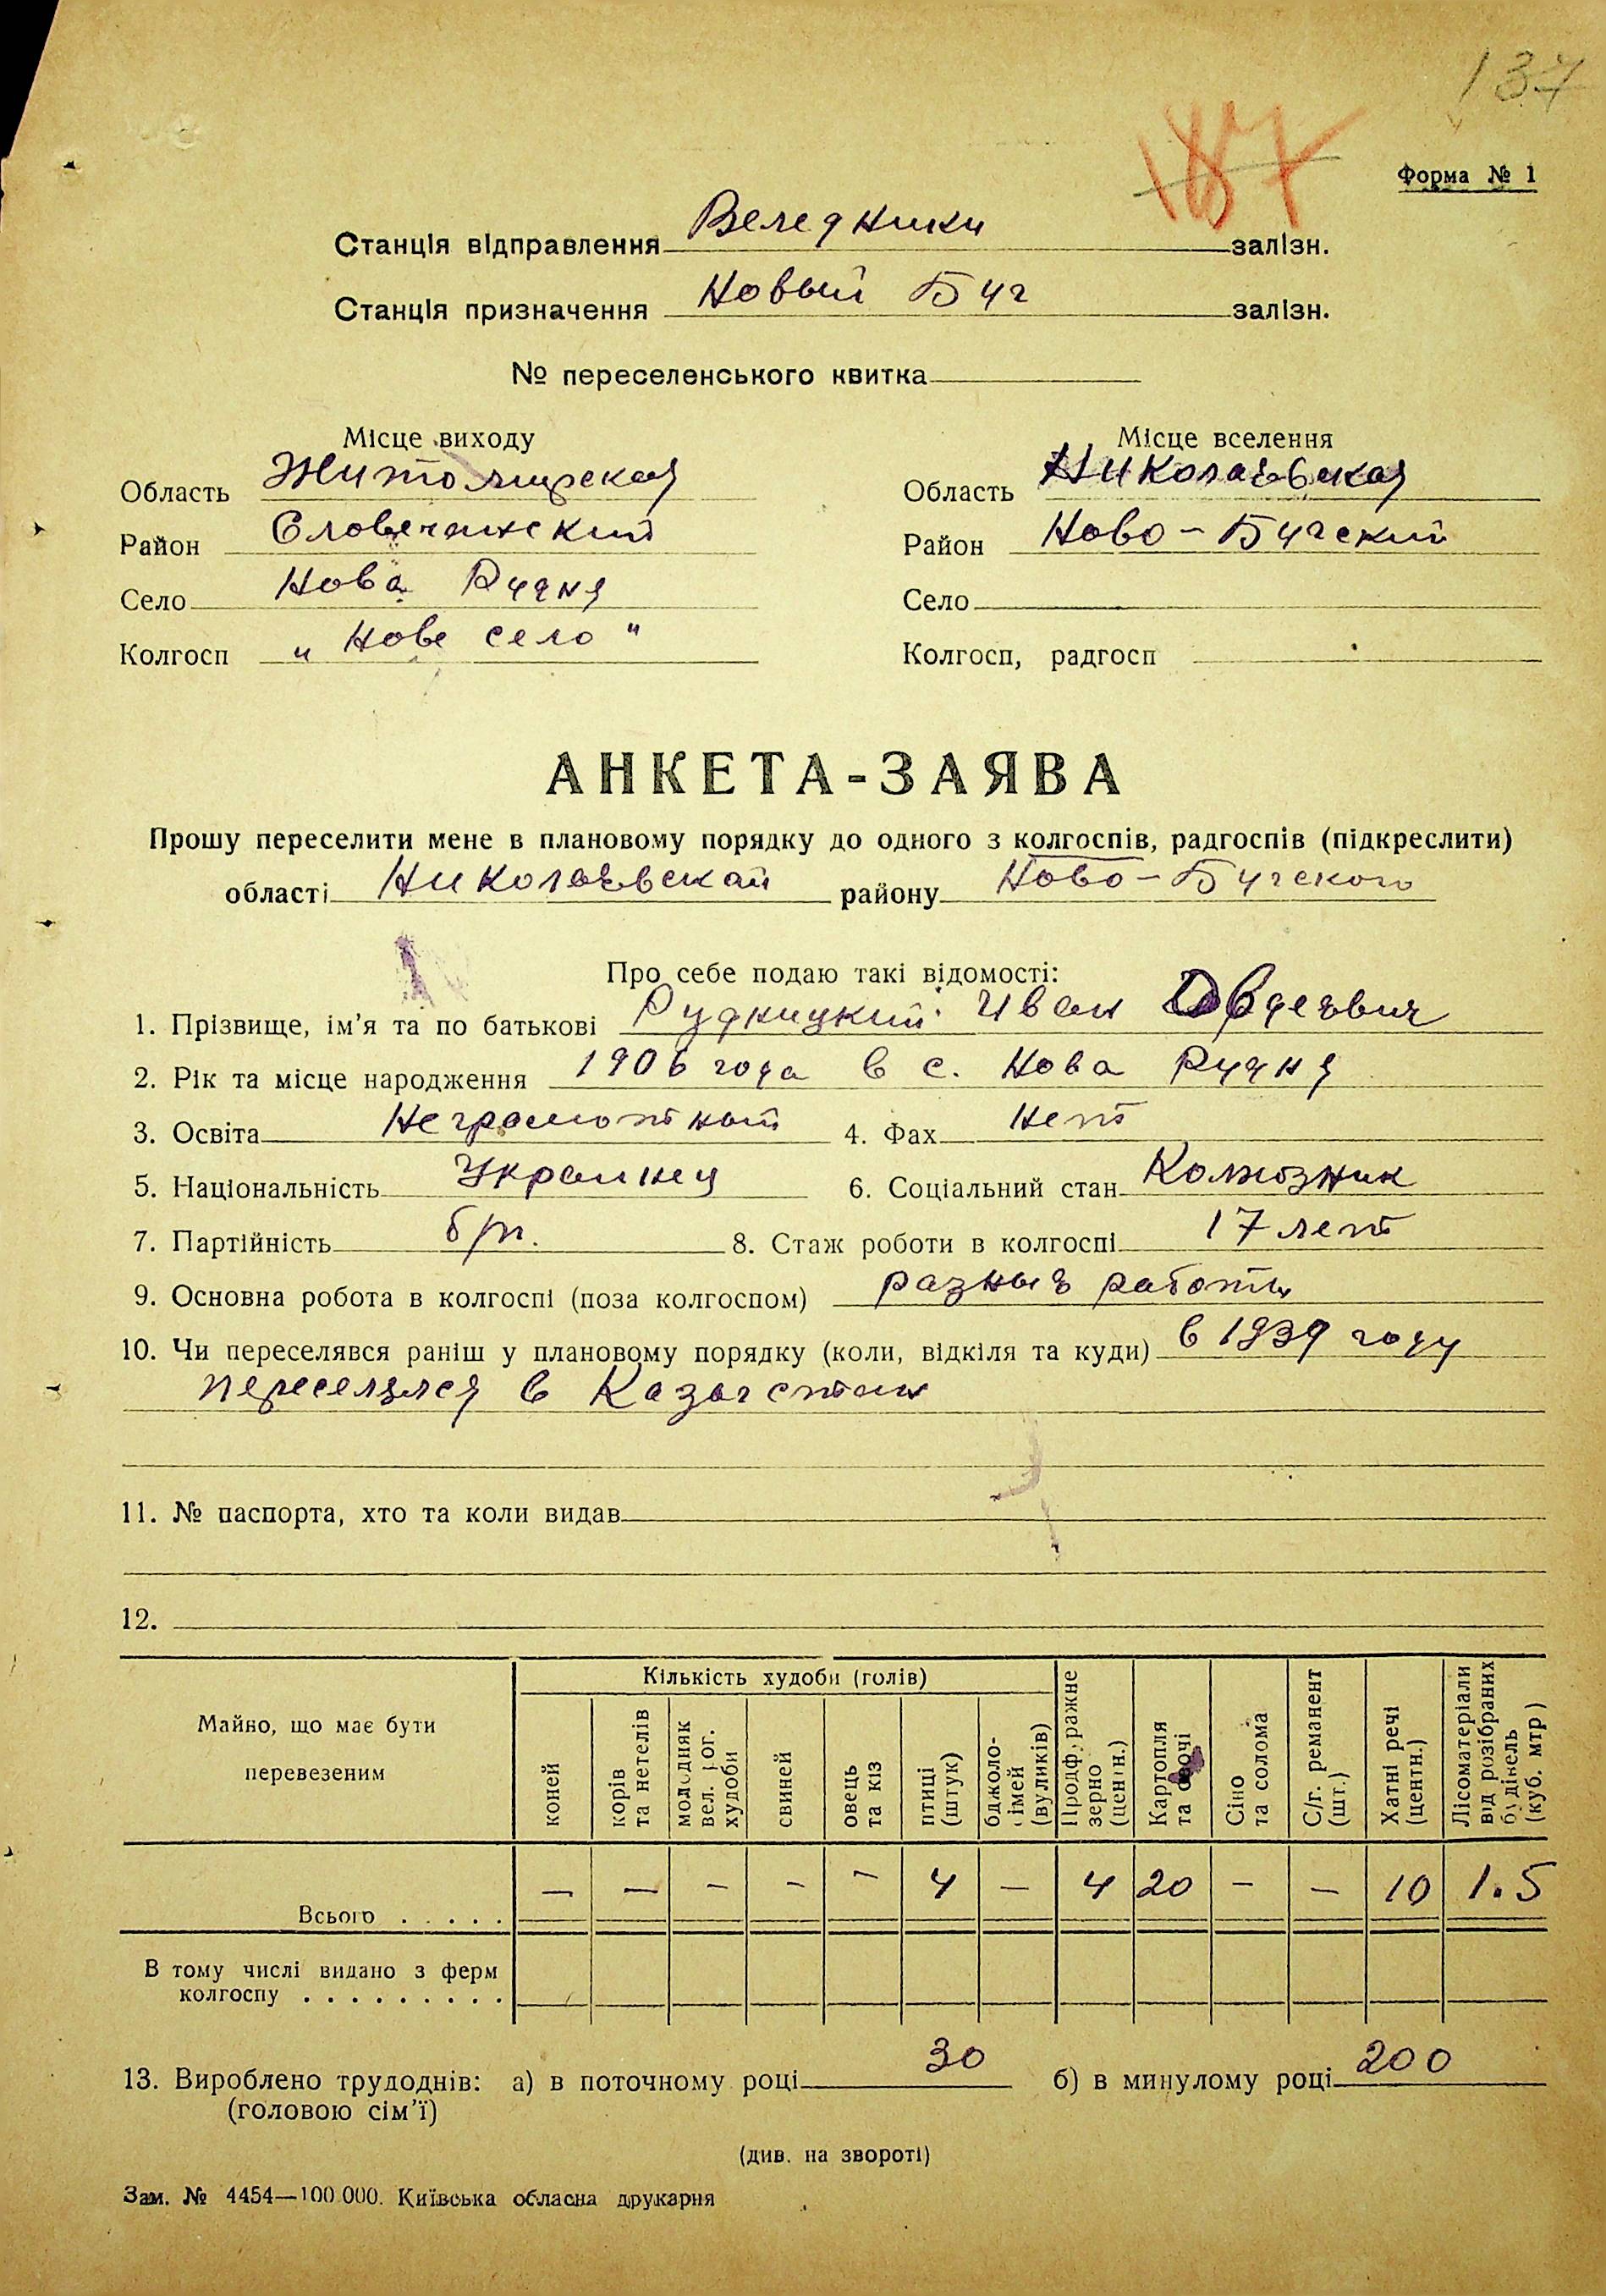 137
187
Форма № 1
Станція відправлення Веледники залізн.
Станція призначення Новый Буг залізн.
№ переселенського квитка
Місце виходу Місце вселення
Область Житомирская Область Николаевская
Район Словечанский Район Ново-Бугский
Село Нова Рудня Село
Колгосп „Нове село" Колгосп, радгосп
АНКЕТА-ЗАЯВА
Прошу переселити мене в плановому порядку до одного з колгоспів, радгоспів (підкреслити)
області Николаевской району Ново-Бугского
Про себе подаю такі відомості:
1. Прізвище, ім'я та по батькові Рудницкий Иван
2. Рік та місце народження 1906 года в с. Нова Рудня
3. Освіта Неграмотный 4. Фах нет
5. Національність Украинец 6. Соціальний стан Колхозник
7. Партійність б/п. 8. Стаж роботи в колгоспі 17 лет
9. Основна робота в колгоспі (поза колгоспом) разные работы
10. Чи переселявся раніш у плановому порядку (коли, відкіля та куди) в 1939 году
переселялся в Казахстан
11. № паспорта, хто та коли видав
12.
Майно, що має бути перевезеним Кількість худоби (голів)
коней корів та нетелів молодняк вел. рог. худоби свиней овець та кіз птиці (штук) бджоло-сімей (вуликів) Продф, ражне зерно (центн.) Картопля та овочі Сіно та солома С/г. реманент (шт.) Хатні речі (центн.) Лісоматеріали від розібраних будівель (куб. мтр)
Всього . . . . . — — — — — 4 — 4 20 — — 10 1.5
В тому числі видано з ферм
колгоспу . . . . . . . . .
13. Вироблено трудоднів: а) в поточному році 30 б) в минулому році 200
(головою сім'ї)
(див. на звороті)
Зам. № 4454—100.000. Київська обласна друкарня